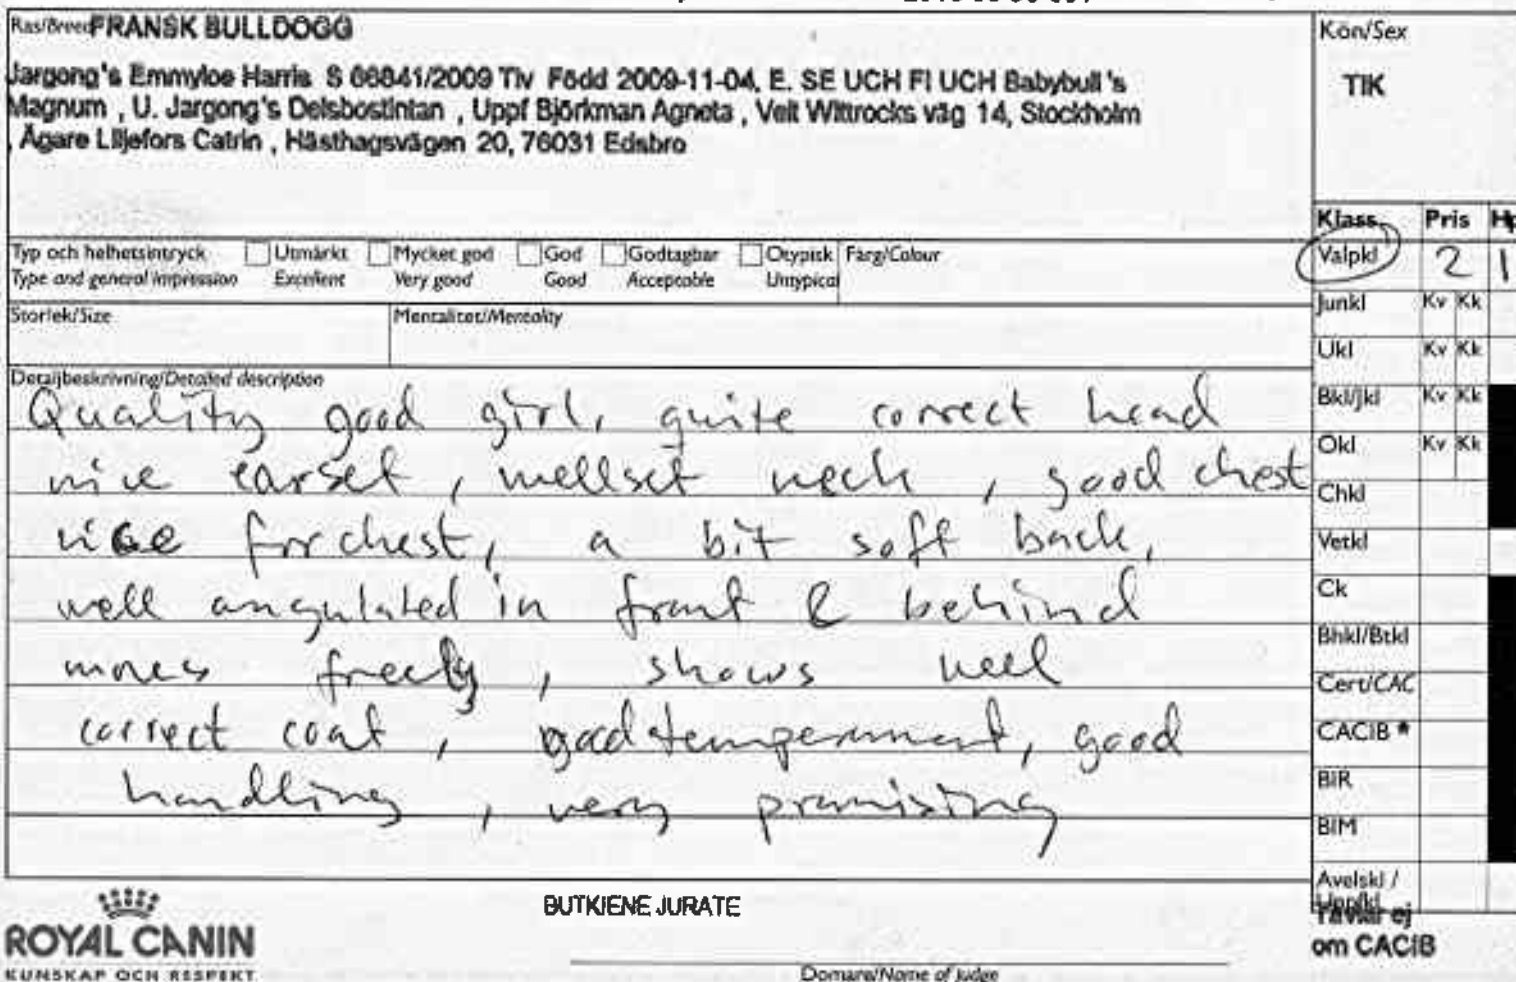 Ras/Breed FRANSK BULLDOGG
Jargong's Emmyloe Harris S 66841/2009 Tiv Född 2009-11-04, E. SE UCH FI UCH Babybull's
Magnum , U. Jargong's Delsbostintan , Uppf Björkman Agneta , Veit Wittrocks väg 14, Stockholm
, Ägare Liljefors Catrin , Hästhagsvägen 20, 76031 Edsbro
Kön/Sex
TIK
Klass Pris Hp
Typ och helhetsintryck Utmärkt Mycket god God Godtagbar Otypisk Färg/Colour
Type and general impression Excellent Very good Good Acceptable Untypical
Valpkl 2 1
Storlek/Size Mentalitet/Mentality
Junkl Kv Kk
Ukl Kv Kk
Detaljbeskrivning/Detailed description
Quality good girl, quite correct head
nice earset, wellset neck, good chest
nice forchest, a bit soft back,
well angulated in front & behind
moves freely, shows well
correct coat, good temperament, good
handling, very promising
Bkl/Jkl Kv Kk
Okl Kv Kk
Chkl
Vetkl
Ck
Bhkl/Btkl
Cert/CAC
CACIB *
BIR
BIM
Avelskl /
Uppfkl
Tävlar ej
om CACIB
ROYAL CANIN
KUNSKAP OCH RESPEKT
BUTKIENE JURATE
Domare/Name of Judge